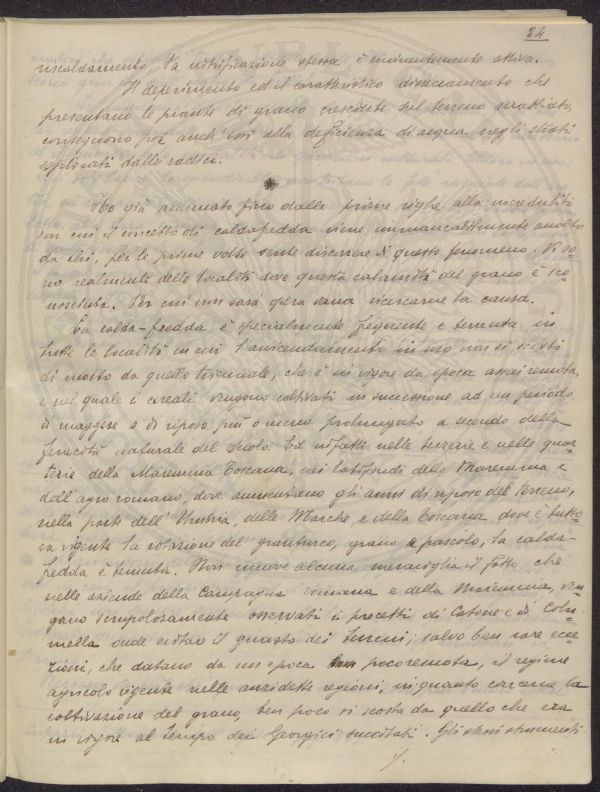 24
riscaldamento, la nitrificazione stessa è eminentemente attiva.
Il deperimento ed il caratteristico disseccamento che
presentano le piante di grano cresciute sul terreno arrabbiato,
conseguono poi anch'essi alla deficienza di acqua negli strati
esplorati dalle radici.
Ho già accennato fino dalle prime righe alla incredulità
con cui il concetto di caldafredda viene immancabilmente accolto
da chi, per le prime volte sente discorrere di questo fenomeno. Vi so-
no realmente delle località dove questa calamità del grano è sco-
nosciuta. Per cui non sarà opera vana ricercarne la causa.
La calda-fredda è specialmente frequente e temuta in
tutte le località in cui l'avvicendamento in uso non si scosti
di molto da quello triennale, che è in vigore da epoca assai remota,
e nel quale i cereali vengono coltivati in successione ad un periodo
di maggese o di riposo più o meno prolungato a secondo della
feracità naturale del suolo. Ed infatti nelle terzerie e nelle quar-
terie della Maremma Toscana, nei latifondi della Maremma e
dell'agro romano, dove aumentano gli anni di riposo del terreno,
nella parte dell'Umbria, delle Marche e della Toscana dove è tutto-
ra vigente la rotazione del granturco, grano e pascolo, la calda-
fredda è temuta. Non muove alcuna meraviglia il fatto che
nelle aziende della Campagna romana e della Maremma, ven-
gano scrupolosamente osservati i precetti di Catone e di Colu-
mella onde evitare il guasto dei terreni; salvo ben rare ecce-
zioni, che datano da un epoca poco remota, il regime
agricolo vigente nelle anzidette regioni, in quanto concerne la
coltivazione del grano, ben poco si scosta da quello che era
in vigore al tempo dei Georgici succitati. Gli stessi strumenti
./.